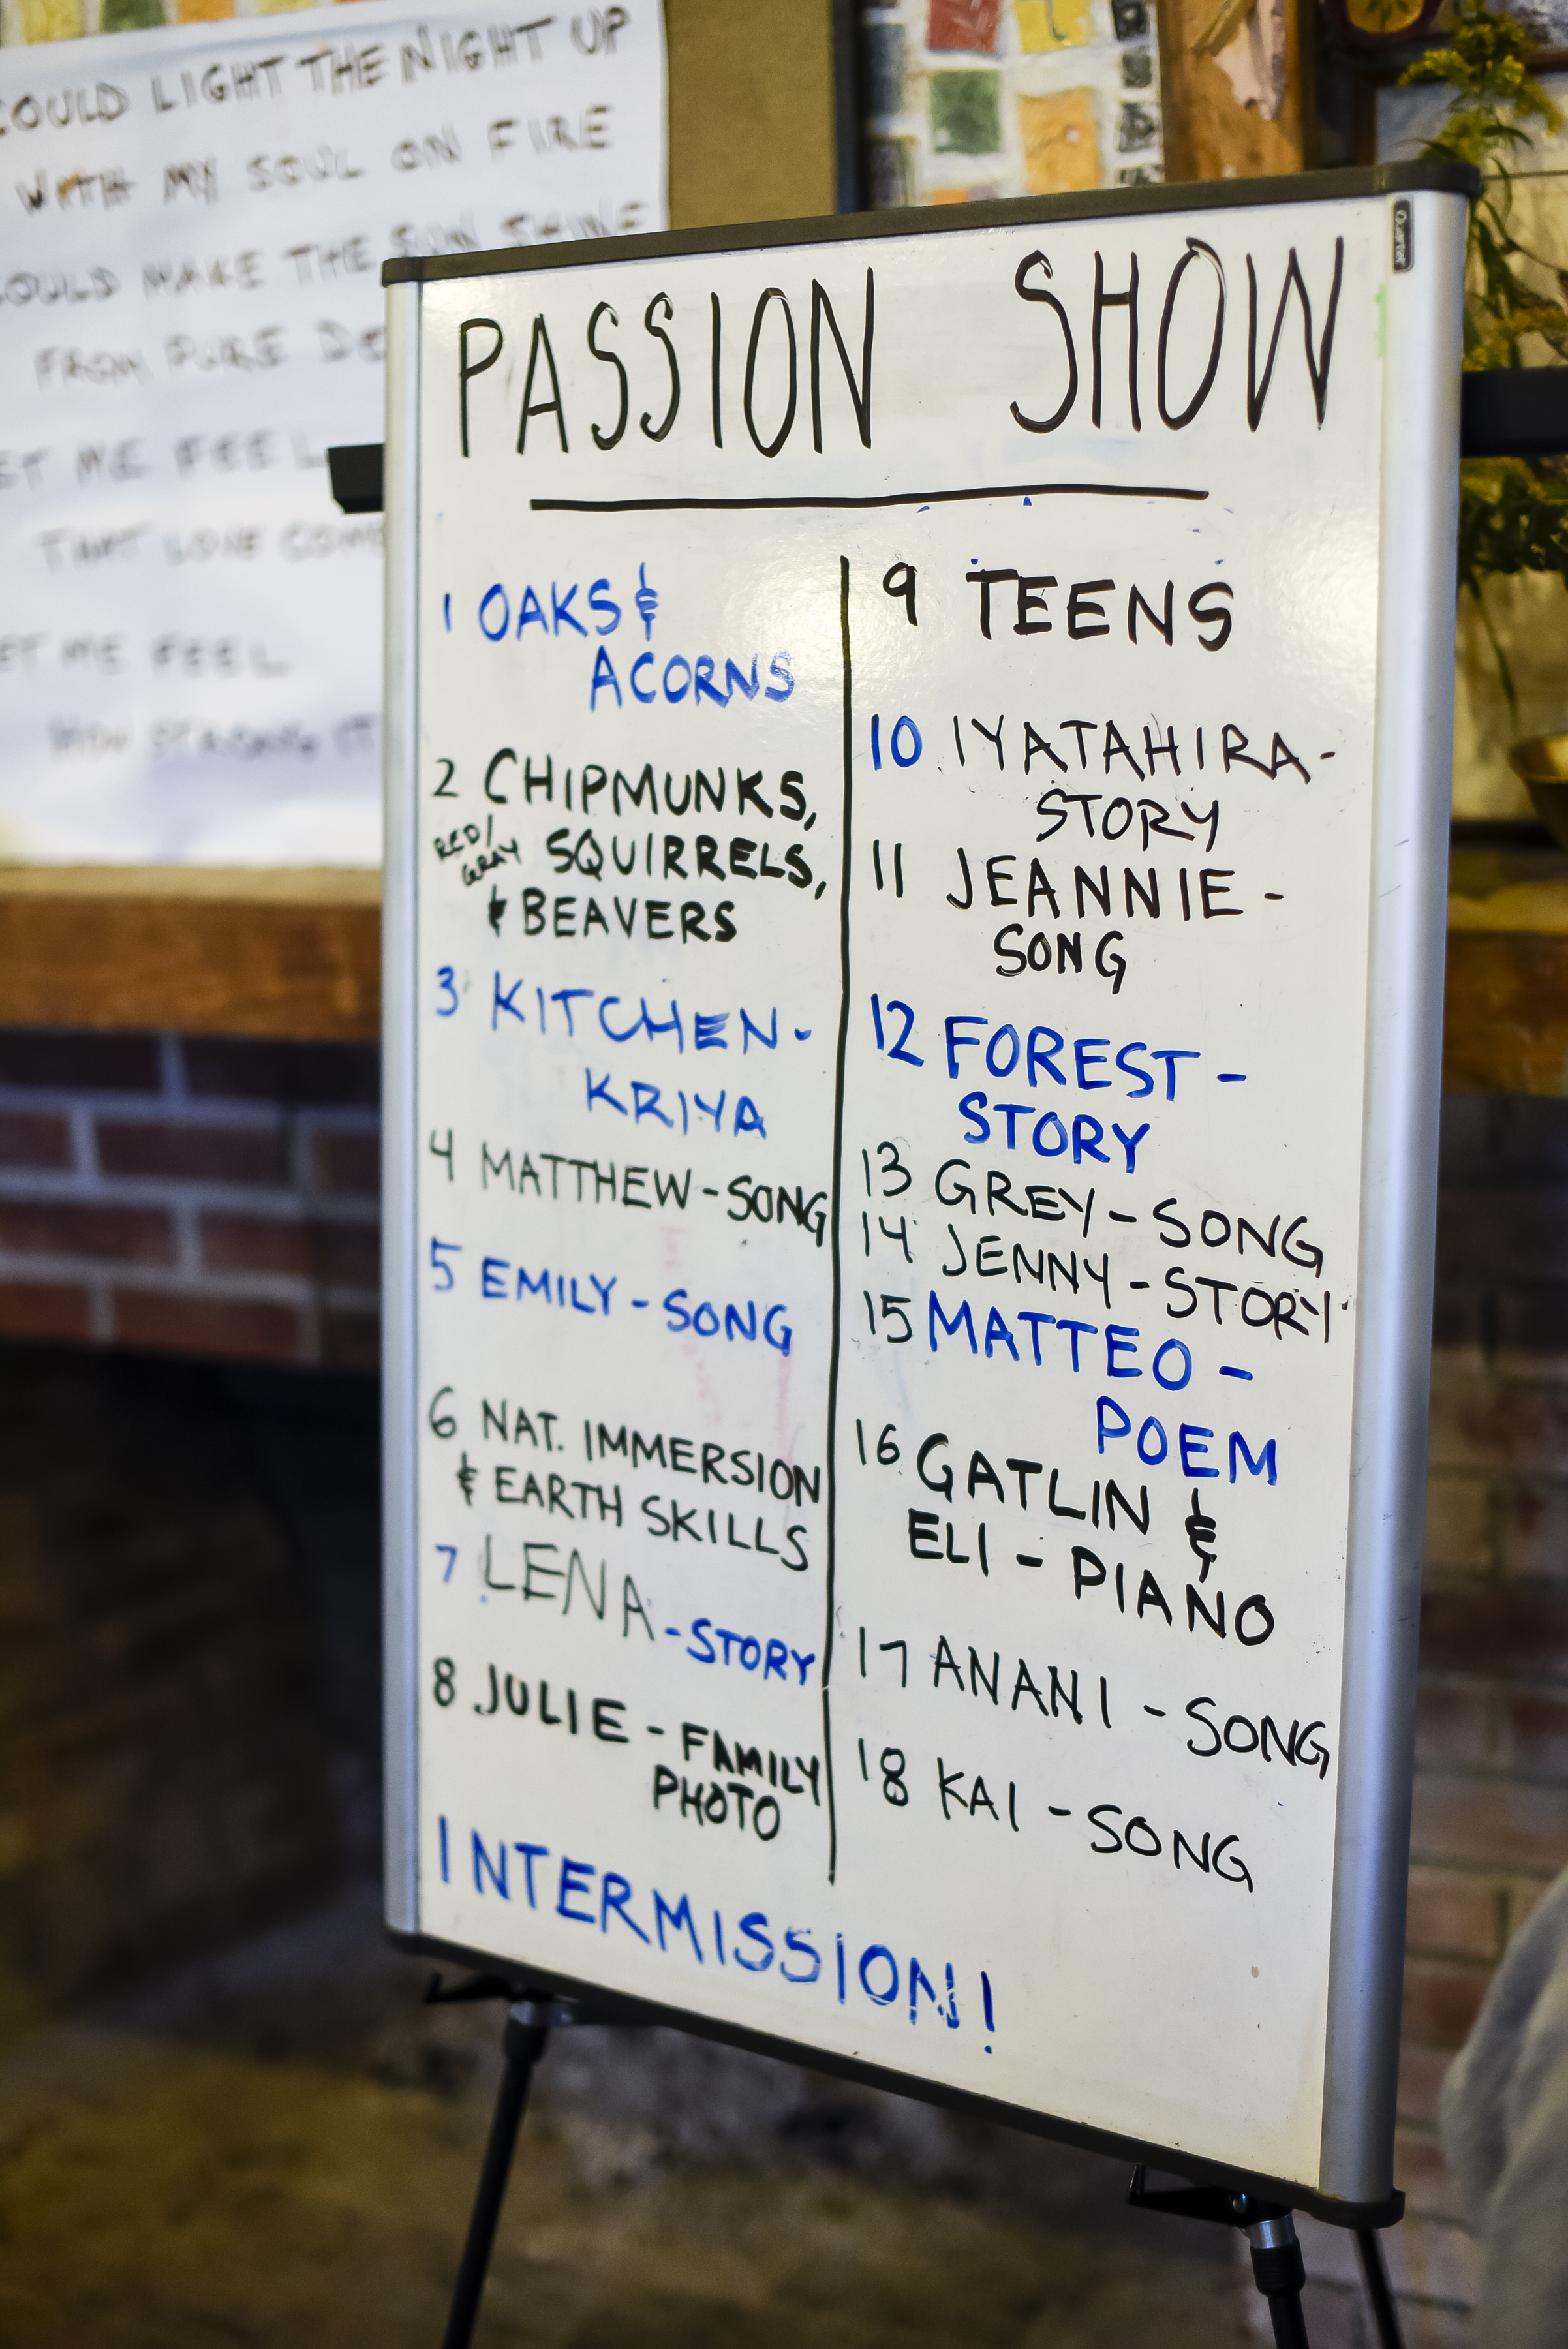 COULD LIGHT THE NIGHT UP
WITH MY SOUL ON FIRE
COULD MAKE THE SUN SHINE
FROM PURE DE
ET ME FEEL
THAT LOVE COME
ET ME FEEL
HOW STRONG IT
Quartet
PASSION SHOW
1 OAKS &
ACORNS
2 CHIPMUNKS,
RED/
GRAY SQUIRRELS,
& BEAVERS
3 KITCHEN-
KRIYA
4 MATTHEW-SONG
5 EMILY-SONG
6 NAT. IMMERSION
& EARTH SKILLS
7 LENA-STORY
8 JULIE-FAMILY
PHOTO
INTERMISSION!
9 TEENS
10 IYATAHIRA-
STORY
11 JEANNIE-
SONG
12 FOREST-
STORY
13 GREY-SONG
14 JENNY-STORY
15 MATTEO-
POEM
16 GATLIN &
ELI-PIANO
17 ANANI-SONG
18 KAI-SONG